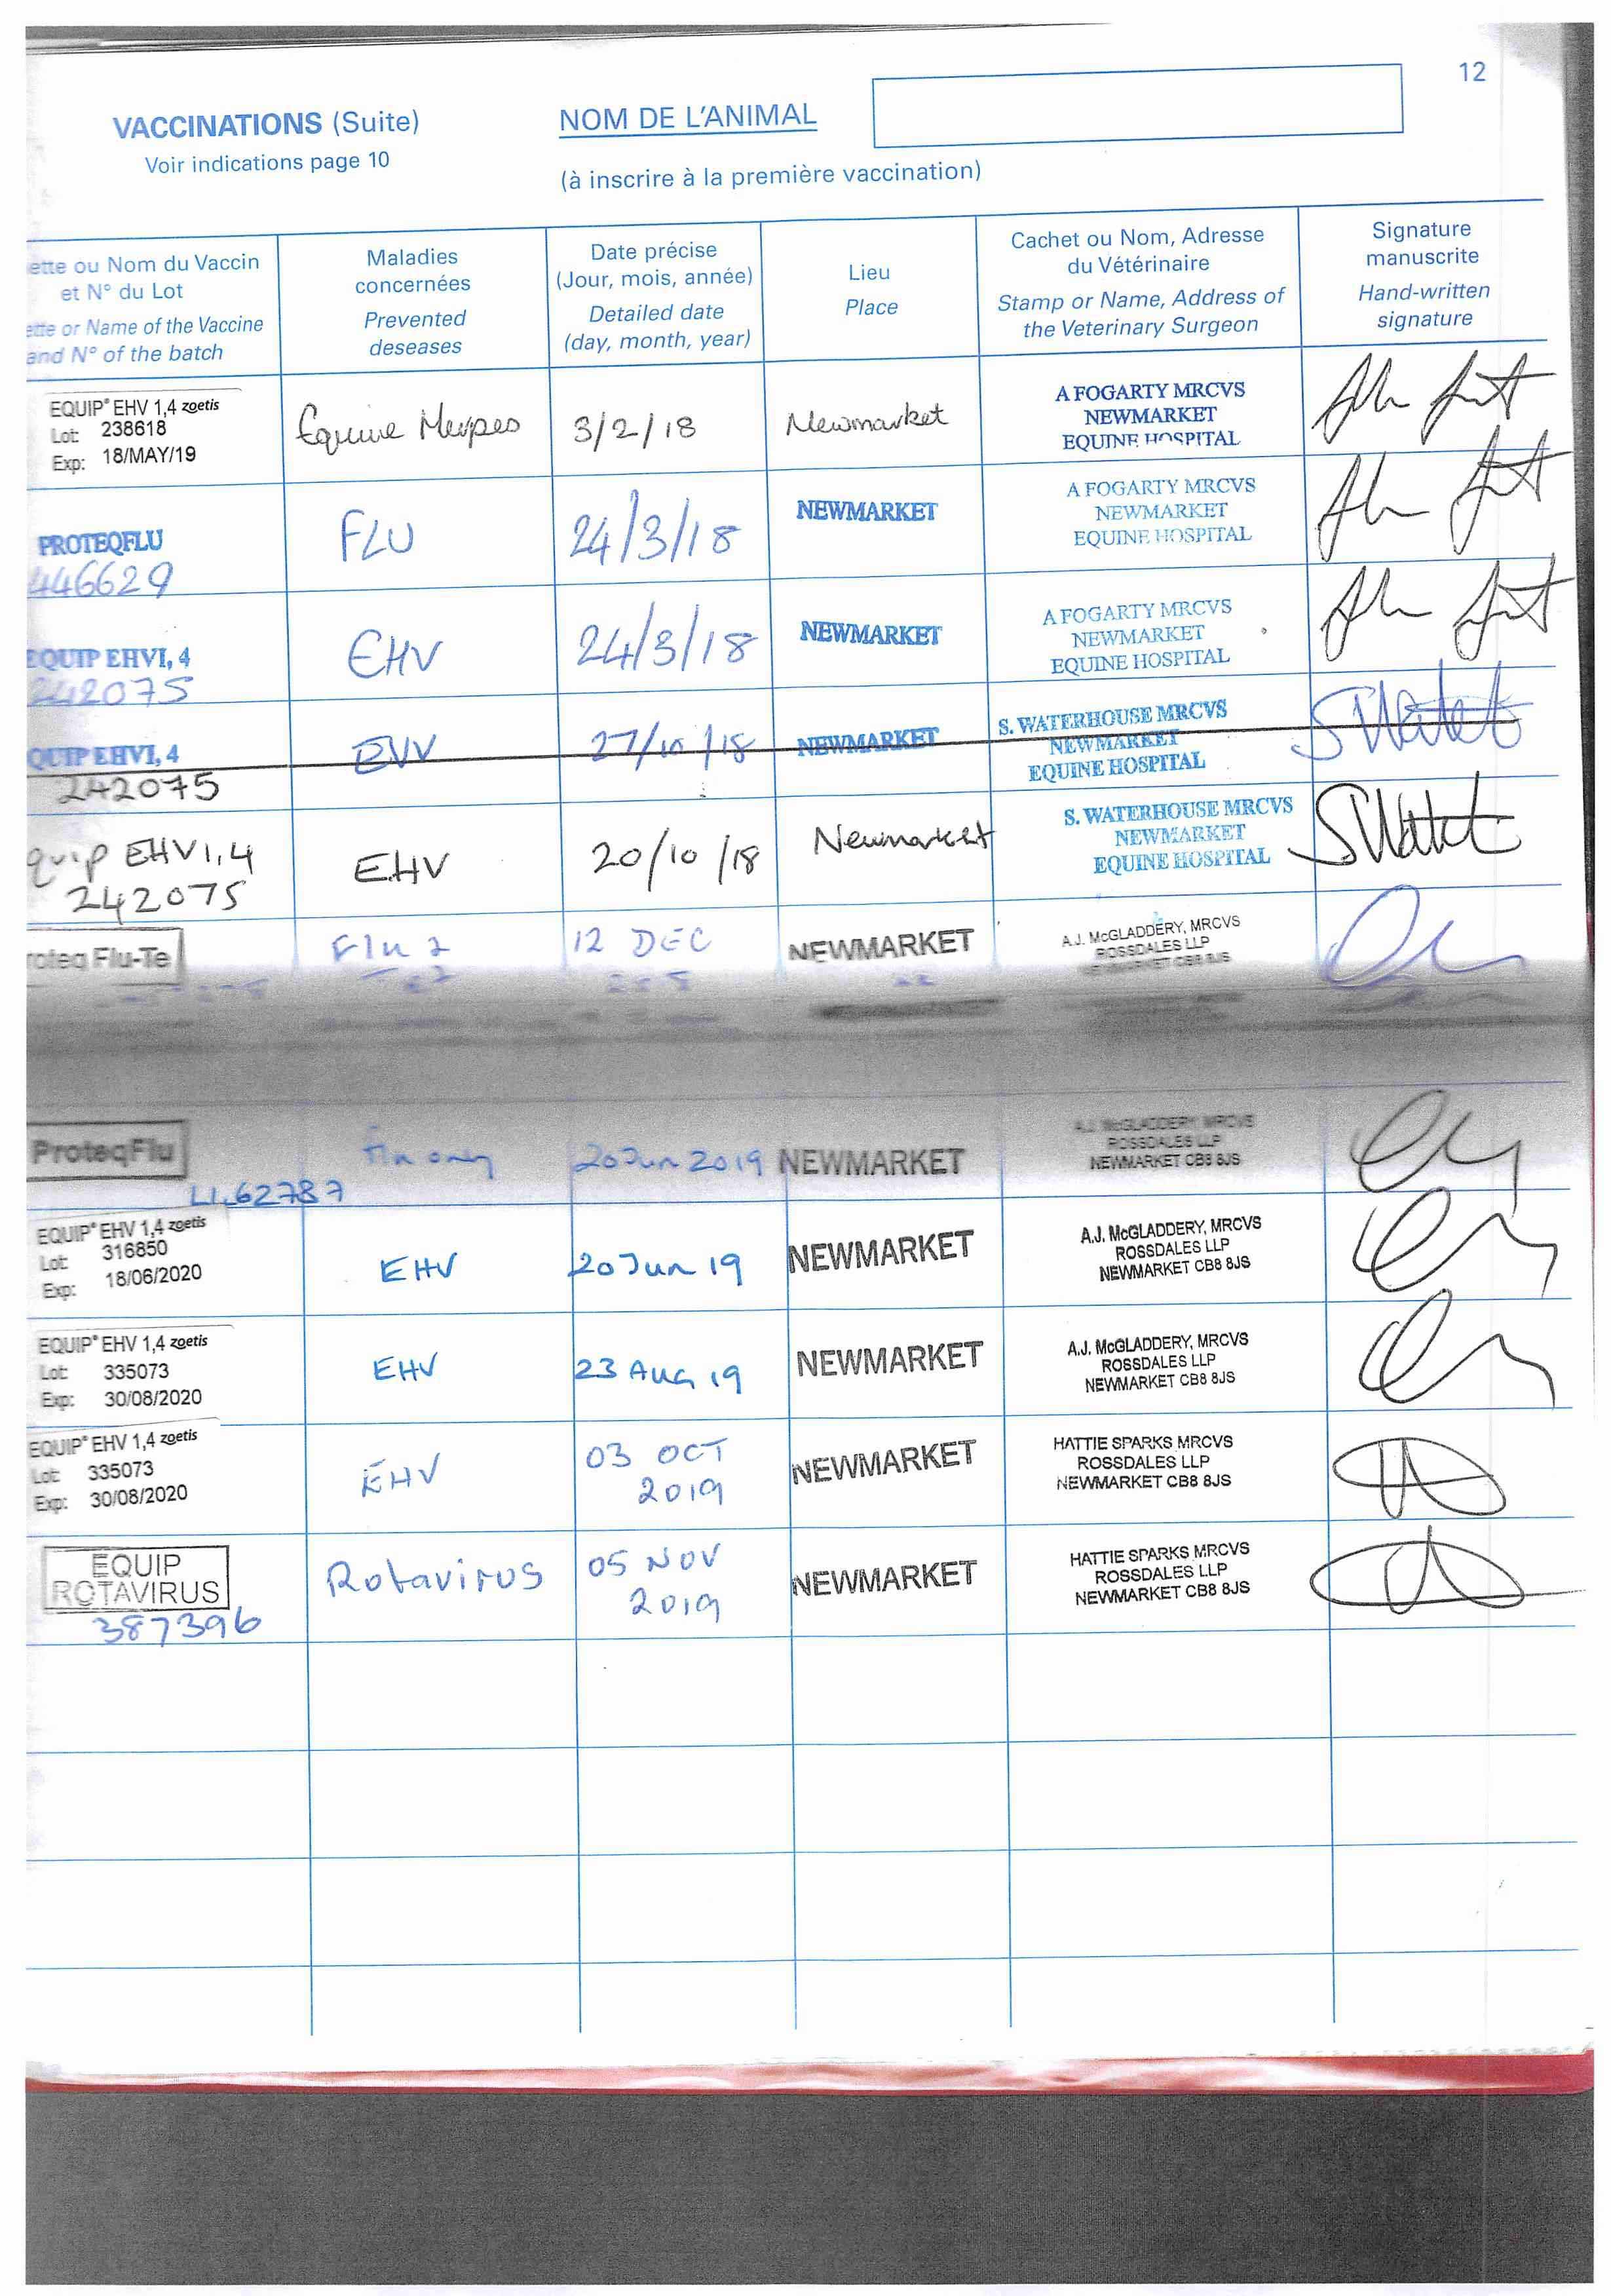 12
VACCINATIONS (Suite)
Voir indications page 10
NOM DE L'ANIMAL
(à inscrire à la première vaccination)
ette ou Nom du Vaccin
et N° du Lot
ette or Name of the Vaccine
and N° of the batch
Maladies
concernées
Prevented
deseases
Date précise
(Jour, mois, année)
Detailed date
(day, month, year)
Lieu
Place
Cachet ou Nom, Adresse
du Vétérinaire
Stamp or Name, Address of
the Veterinary Surgeon
Signature
manuscrite
Hand-written
signature
EQUIP® EHV 1,4 zoetis
Lot: 238618
Exp: 18/MAY/19
Equine Herpes
3/2/18
Newmarket
A FOGARTY MRCVS
NEWMARKET
EQUINE HOSPITAL
PROTEQFLU
446629
FLU
24/3/18
NEWMARKET
A FOGARTY MRCVS
NEWMARKET
EQUINE HOSPITAL
EQUIP EHV1, 4
242075
EHV
24/3/18
NEWMARKET
A FOGARTY MRCVS
NEWMARKET
EQUINE HOSPITAL
QUIP EHV1, 4
242075
27/10/18
NEWMARKET
S. WATERHOUSE MRCVS
NEWMARKET
EQUINE HOSPITAL
quip EHV1,4
242075
EHV
20/10/18
Newmarket
S. WATERHOUSE MRCVS
NEWMARKET
EQUINE HOSPITAL
roteq Flu-Te
Flu &
12 DEC
NEWMARKET
A.J. McGLADDERY, MRCVS
ROSSDALES LLP
NEWMARKET CB8 8JS
ProteqFlu
L162787
Flu only
20 Jun 2019
NEWMARKET
A.J. McGLADDERY MRCVS
ROSSDALES LLP
NEWMARKET CB8 8JS
EQUIP® EHV 1,4 zoetis
Lot: 316850
Exp: 18/06/2020
EHV
20 Jun 19
NEWMARKET
A.J. McGLADDERY, MRCVS
ROSSDALES LLP
NEWMARKET CB8 8JS
EQUIP® EHV 1,4 zoetis
Lot: 335073
Exp: 30/08/2020
EHV
23 Aug 19
NEWMARKET
A.J. McGLADDERY, MRCVS
ROSSDALES LLP
NEWMARKET CB8 8JS
EQUIP® EHV 1,4 zoetis
Lot: 335073
Exp: 30/08/2020
EHV
03 OCT
2019
NEWMARKET
HATTIE SPARKS MRCVS
ROSSDALES LLP
NEWMARKET CB8 8JS
EQUIP
ROTAVIRUS
387396
Rotavirus
05 NOV
2019
NEWMARKET
HATTIE SPARKS MRCVS
ROSSDALES LLP
NEWMARKET CB8 8JS